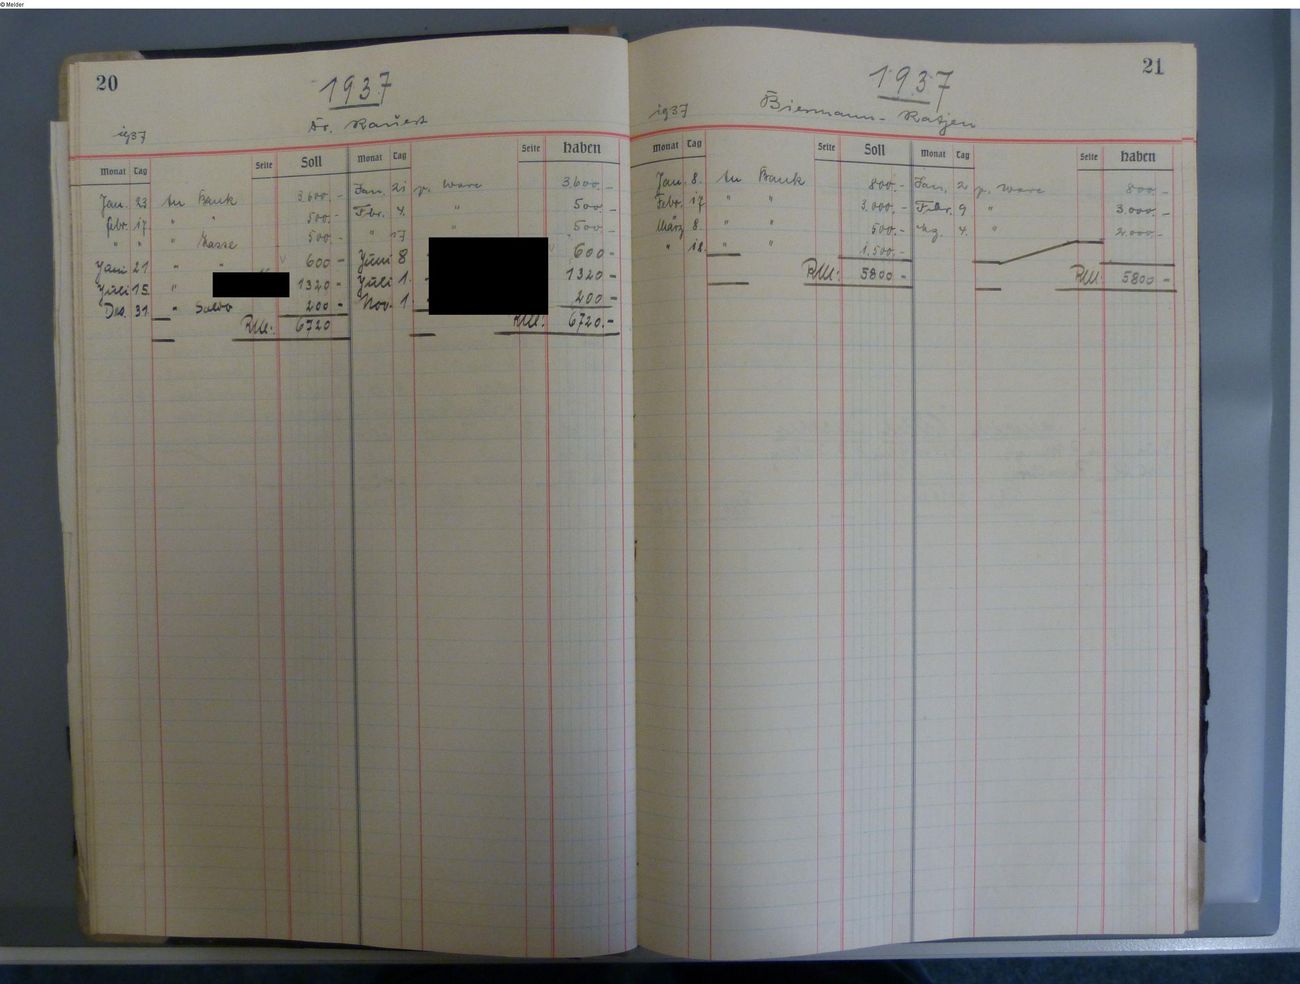 © Melder
20
1937
1937
Dr. Rauert
Monat Tag Seite Soll Monat Tag Seite Haben
Jan. 23 An Bank 3.600.- Jan. 21 p. Ware 3.600.-
Febr. 17. " " 500.- Febr. 4. " 500.-
" " " Kasse 500.- " 17 " 500.-
Juni 21 " " 600- Juni 8 600-
Juli 15. " 1320- Juli 1. 1320-
Dez. 31 " Saldo 200- Nov. 1 200-
RM: 6720 RM: 6720.-
21
1937
1937
Biermann-Ratjen
Monat Tag Seite Soll Monat Tag Seite Haben
Jan. 8. An Bank 800.- Jan. 2 p. Ware 800.-
Febr. 17. " " 3.000.- Febr. 9 " 3.000.-
März 8. " " 500.- 4. " 2.000.-
" 12. " " 1.500.-
RM: 5800- RM: 5800-